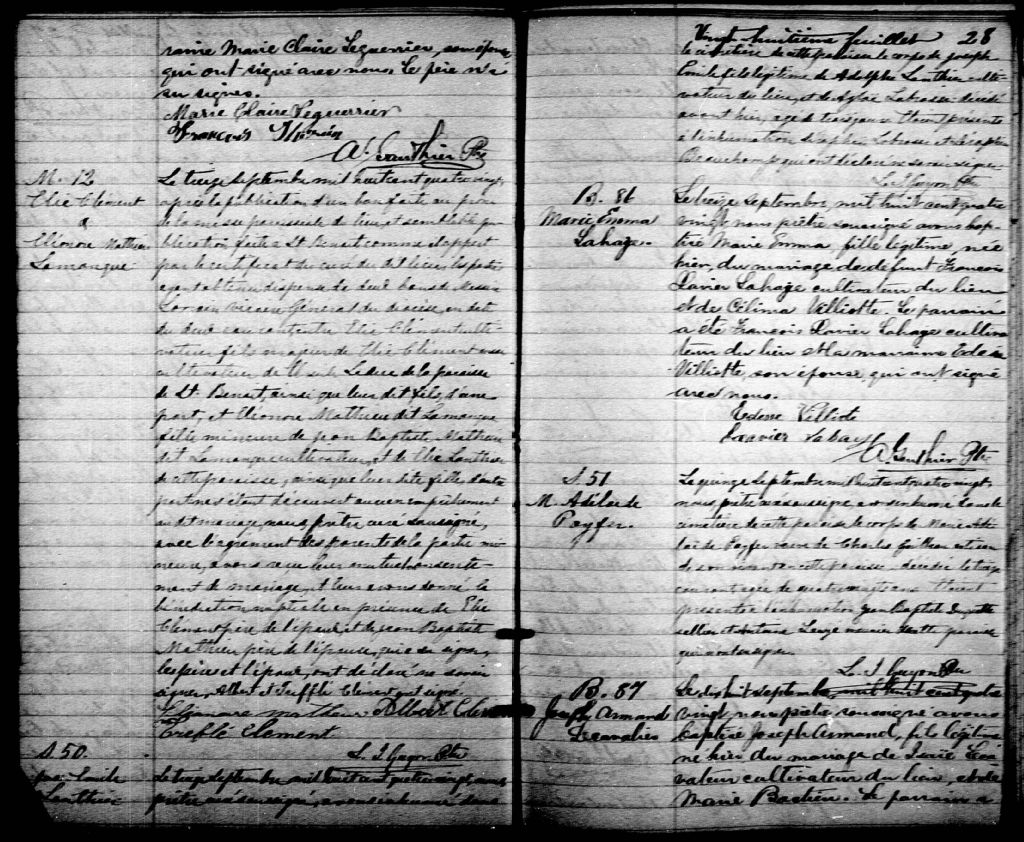 raine Marie Claire Leguerrier, son épouse
qui ont signé avec nous. Le père n'a
su signer.
Marie Claire Leguerrier
François
A. Gauthier Ptre
M. 12
Elie Clément
&
Eléonore Mathieu
Lamangue
Le treize septembre mil huit cent quatre vingt,
après la publication d'un ban faite au prône
de la messe paroissiale de lieu, et semblable pu-
blication faite à St. Benoit comme il appert
par le certificat du curé du dit lieu, les parties
ayant obtenu dispense de deux bans de Messire
Lorrain Vicaire Général du diocèse en date
du deux courant entre Elie Clément culti-
vateur fils majeur de Elie Clément aussi
cultivateur de Leduc de la paroisse
de St. Benoit, ainsi que leur dit fils, d'une
part, et Eléonore Mathieu dit Lamangue
fille mineure de Jean Baptiste Mathieu
dit Lamangue cultivateur, et de Elie Lanthier
de cette paroisse, ainsi que leur dite fille, d'autre
part, ne s'étant découvert aucun empêchement
au dit mariage, nous prêtre curé soussigné,
avec l'agrément des parents de la partie mi-
neure, avons reçu leur mutuel consente-
ment de mariage, et leur avons donné la
bénédiction nuptiale en présence de Elie
Clément père de l'époux, et de Jean Baptiste
Mathieu père de l'épouse, qui a signé,
les père et l'époux, ont déclaré ne savoir
signer, Albert et Treffle Clement ont signé.
Albert Clement
Trefflé Clement
L. J. Guyon Ptre
S. 50
Lanthier
Le treize septembre mil huit cent quatre vingt, nous
prêtre curé soussigné, avons inhumé dans
Vingt-huitième feuillet 28
le cimetière de cette paroisse le corps de Joseph
Emile fils légitime de Adolphe Lanthier culti-
vateur du lieu, et de Aglaé Labrosse décédé
avant hier, agé de trois jours. Etaient présents
à l'inhumation Stephen Labrosse et
Beauchamp qui ont déclaré ne savoir signer.
L. J. Guyon Ptre
B. 86
Marie Emma
Lahaze.
Le treize Septembre, mil huit cent quatre
vingt nous prêtre soussigné avons bap-
tisé Marie Emma fille légitime, née
hier, du mariage de défunt François
Xavier Lahaze cultivateur du lieu
et de Célima Villiotte. Le parrain
a été François Xavier Lahaze cultiva-
teur du lieu et la marraine
Villiotte, son épouse, qui ont signé
avec nous.
Villiote
Xavier Lahaze
A. Gauthier Ptre
S. 51
M. Adélaide
Payfer.
Le quinze Septembre mil huit cent quatre vingt,
nous, prêtre curé soussigné, avons inhumé dans le
cimetière de cette paroisse le corps de Marie Adé-
laide Payfer veuve de Charles
de son vivant de cette paroisse, décédée le treize
courant agée de quatre vingts ans. Etaient
présents à l'inhumation Jean Baptiste
sellier et Antoine menuisier de cette paroisse
qui ont signé.
L. J. Guyon Ptre
B. 87
Joseph Armand
Le dix huit septembre mil huit cent quatre
vingt, nous prêtre soussigné avons
baptisé Joseph Armand, fils légitime
né hier du mariage de
cultivateur du lieu, et de
Marie Bastien. Le parrain a